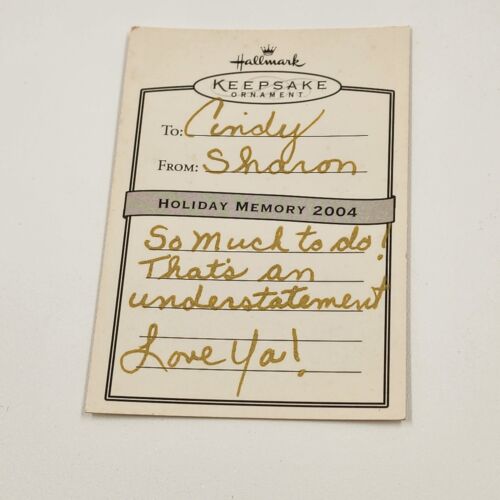 Hallmark
KEEPSAKE
ORNAMENT
TO: Cindy
FROM: Sharon
HOLIDAY MEMORY 2004
So Much to do!
That's an
understatement
Love Ya!